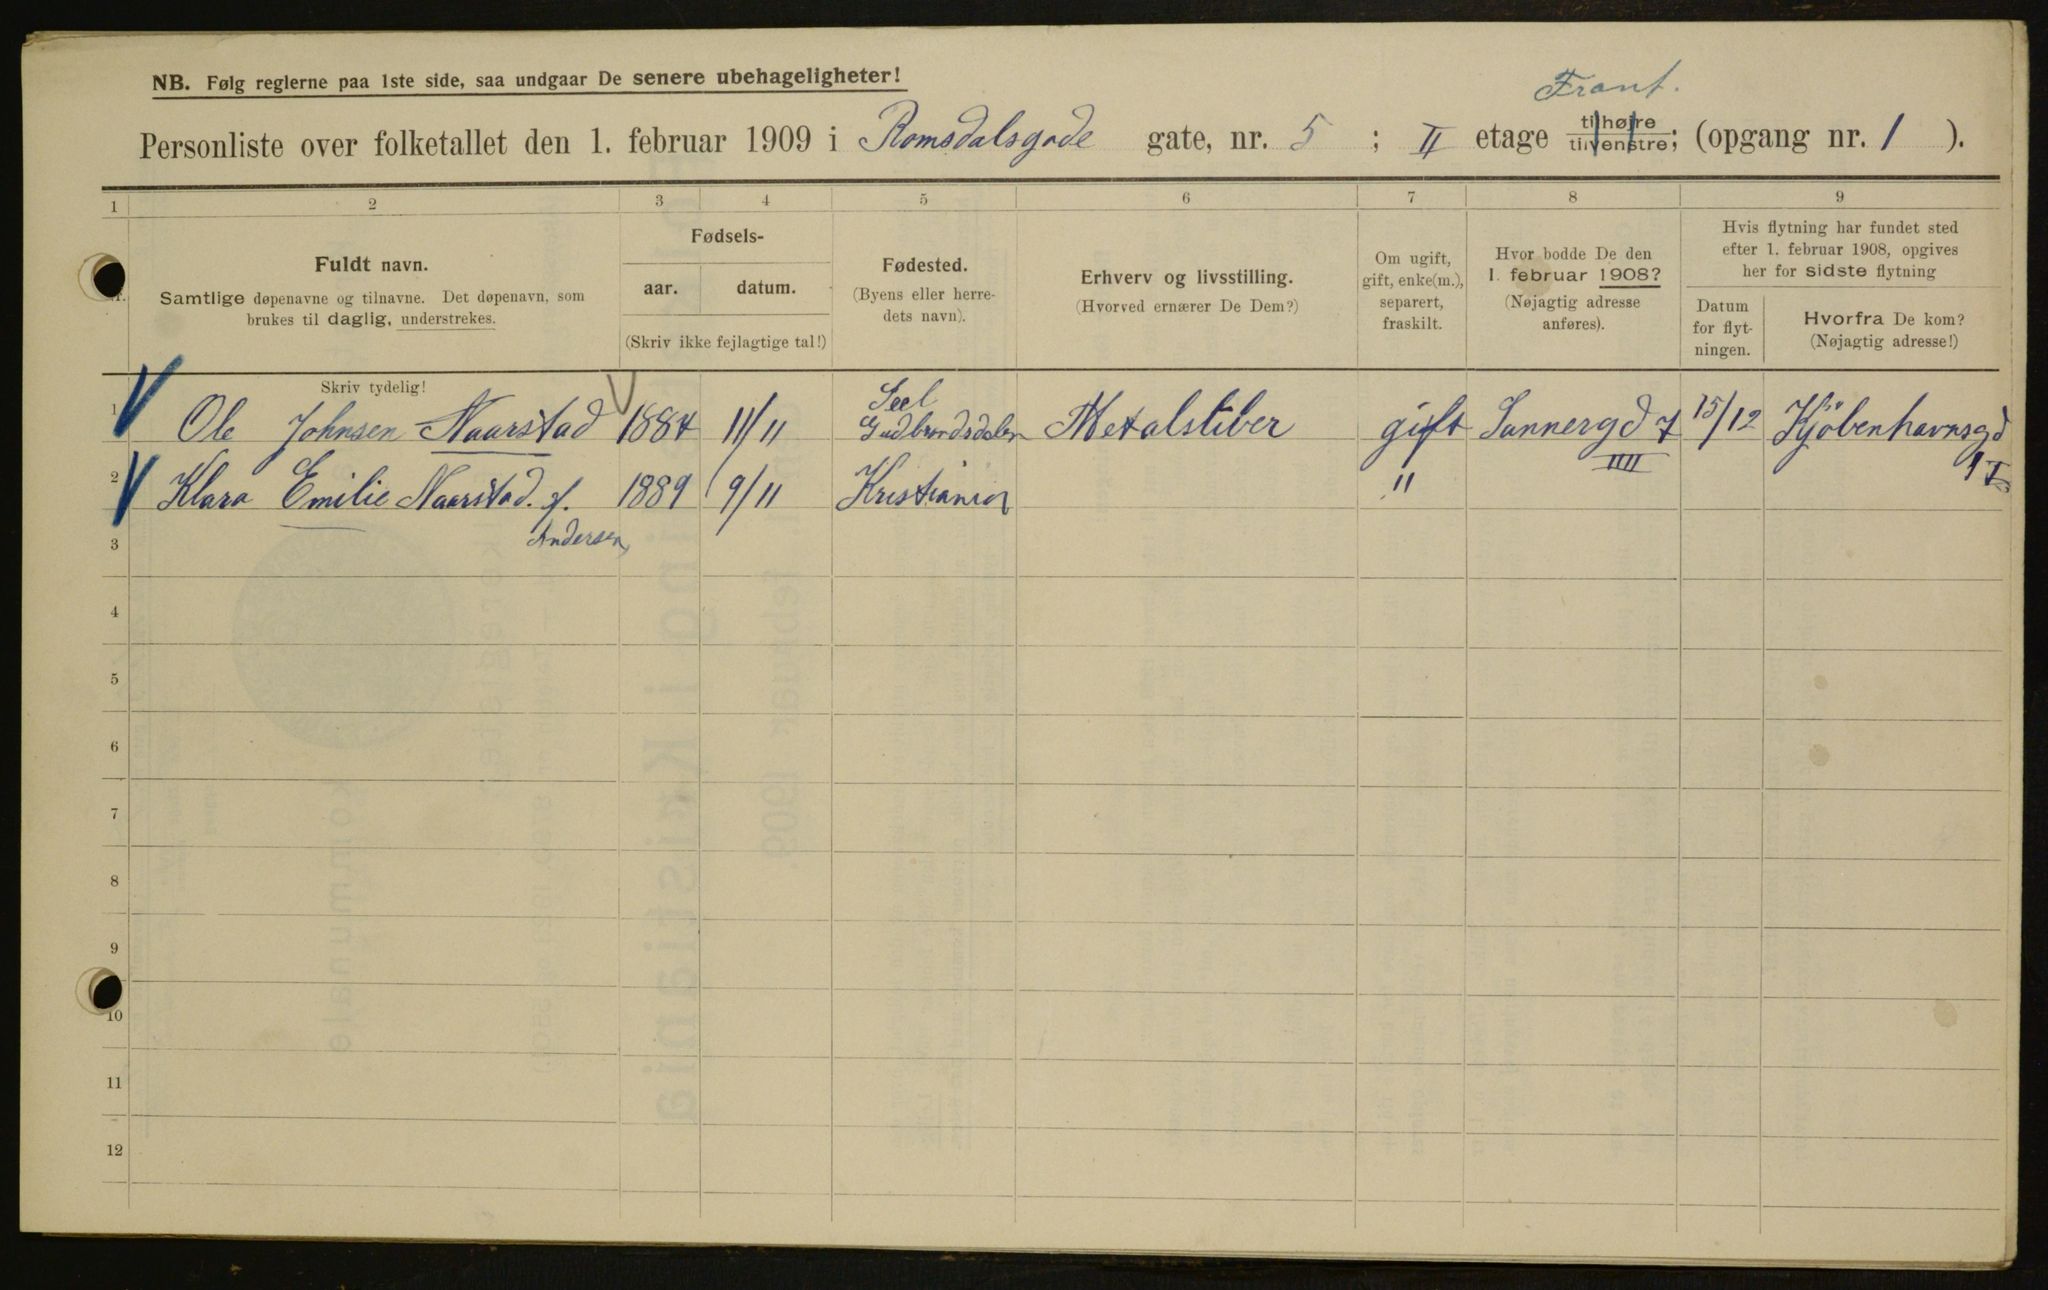 Front.
NB. Følg reglerne paa 1ste side, saa undgaar De senere ubehageligheter!
Personliste over folketallet den 1. februar 1909 i Romsdalsgade gate, nr. 5 ; II etage tilhøjre tilvenstre; (opgang nr. 1 ).
1 2 3 4 5 6 7 8 9
Nr.
Fuldt navn.
Samtlige døpenavne og tilnavne. Det døpenavn, som
brukes til daglig, understrekes.
Fødsels-
aar. datum.
(Skriv ikke fejlagtige tal!)
Fødested.
(Byens eller herre-
dets navn).
Erhverv og livsstilling.
(Hvorved ernærer De Dem?)
Om ugift,
gift, enke(m.),
separert,
fraskilt.
Hvor bodde De den
1. februar 1908?
(Nøjagtig adresse
anføres).
Hvis flytning har fundet sted
efter 1. februar 1908, opgives
her for sidste flytning
Datum
for flyt-
ningen.
Hvorfra De kom?
(Nøjagtig adresse!)
Skriv tydelig!
1 Ole Johnsen Naarstad 1884 11/11 Seel Gudbrandsdalen Metalsliber gift Sannergd 7 IIII 15/12 Kjöbenhavnsgd 1 I
2 Klara Emilie Naarstad. f. 1889 9/11 Kristiania "
Andersen,
3
4
5
6
7
8
9
10
11
12